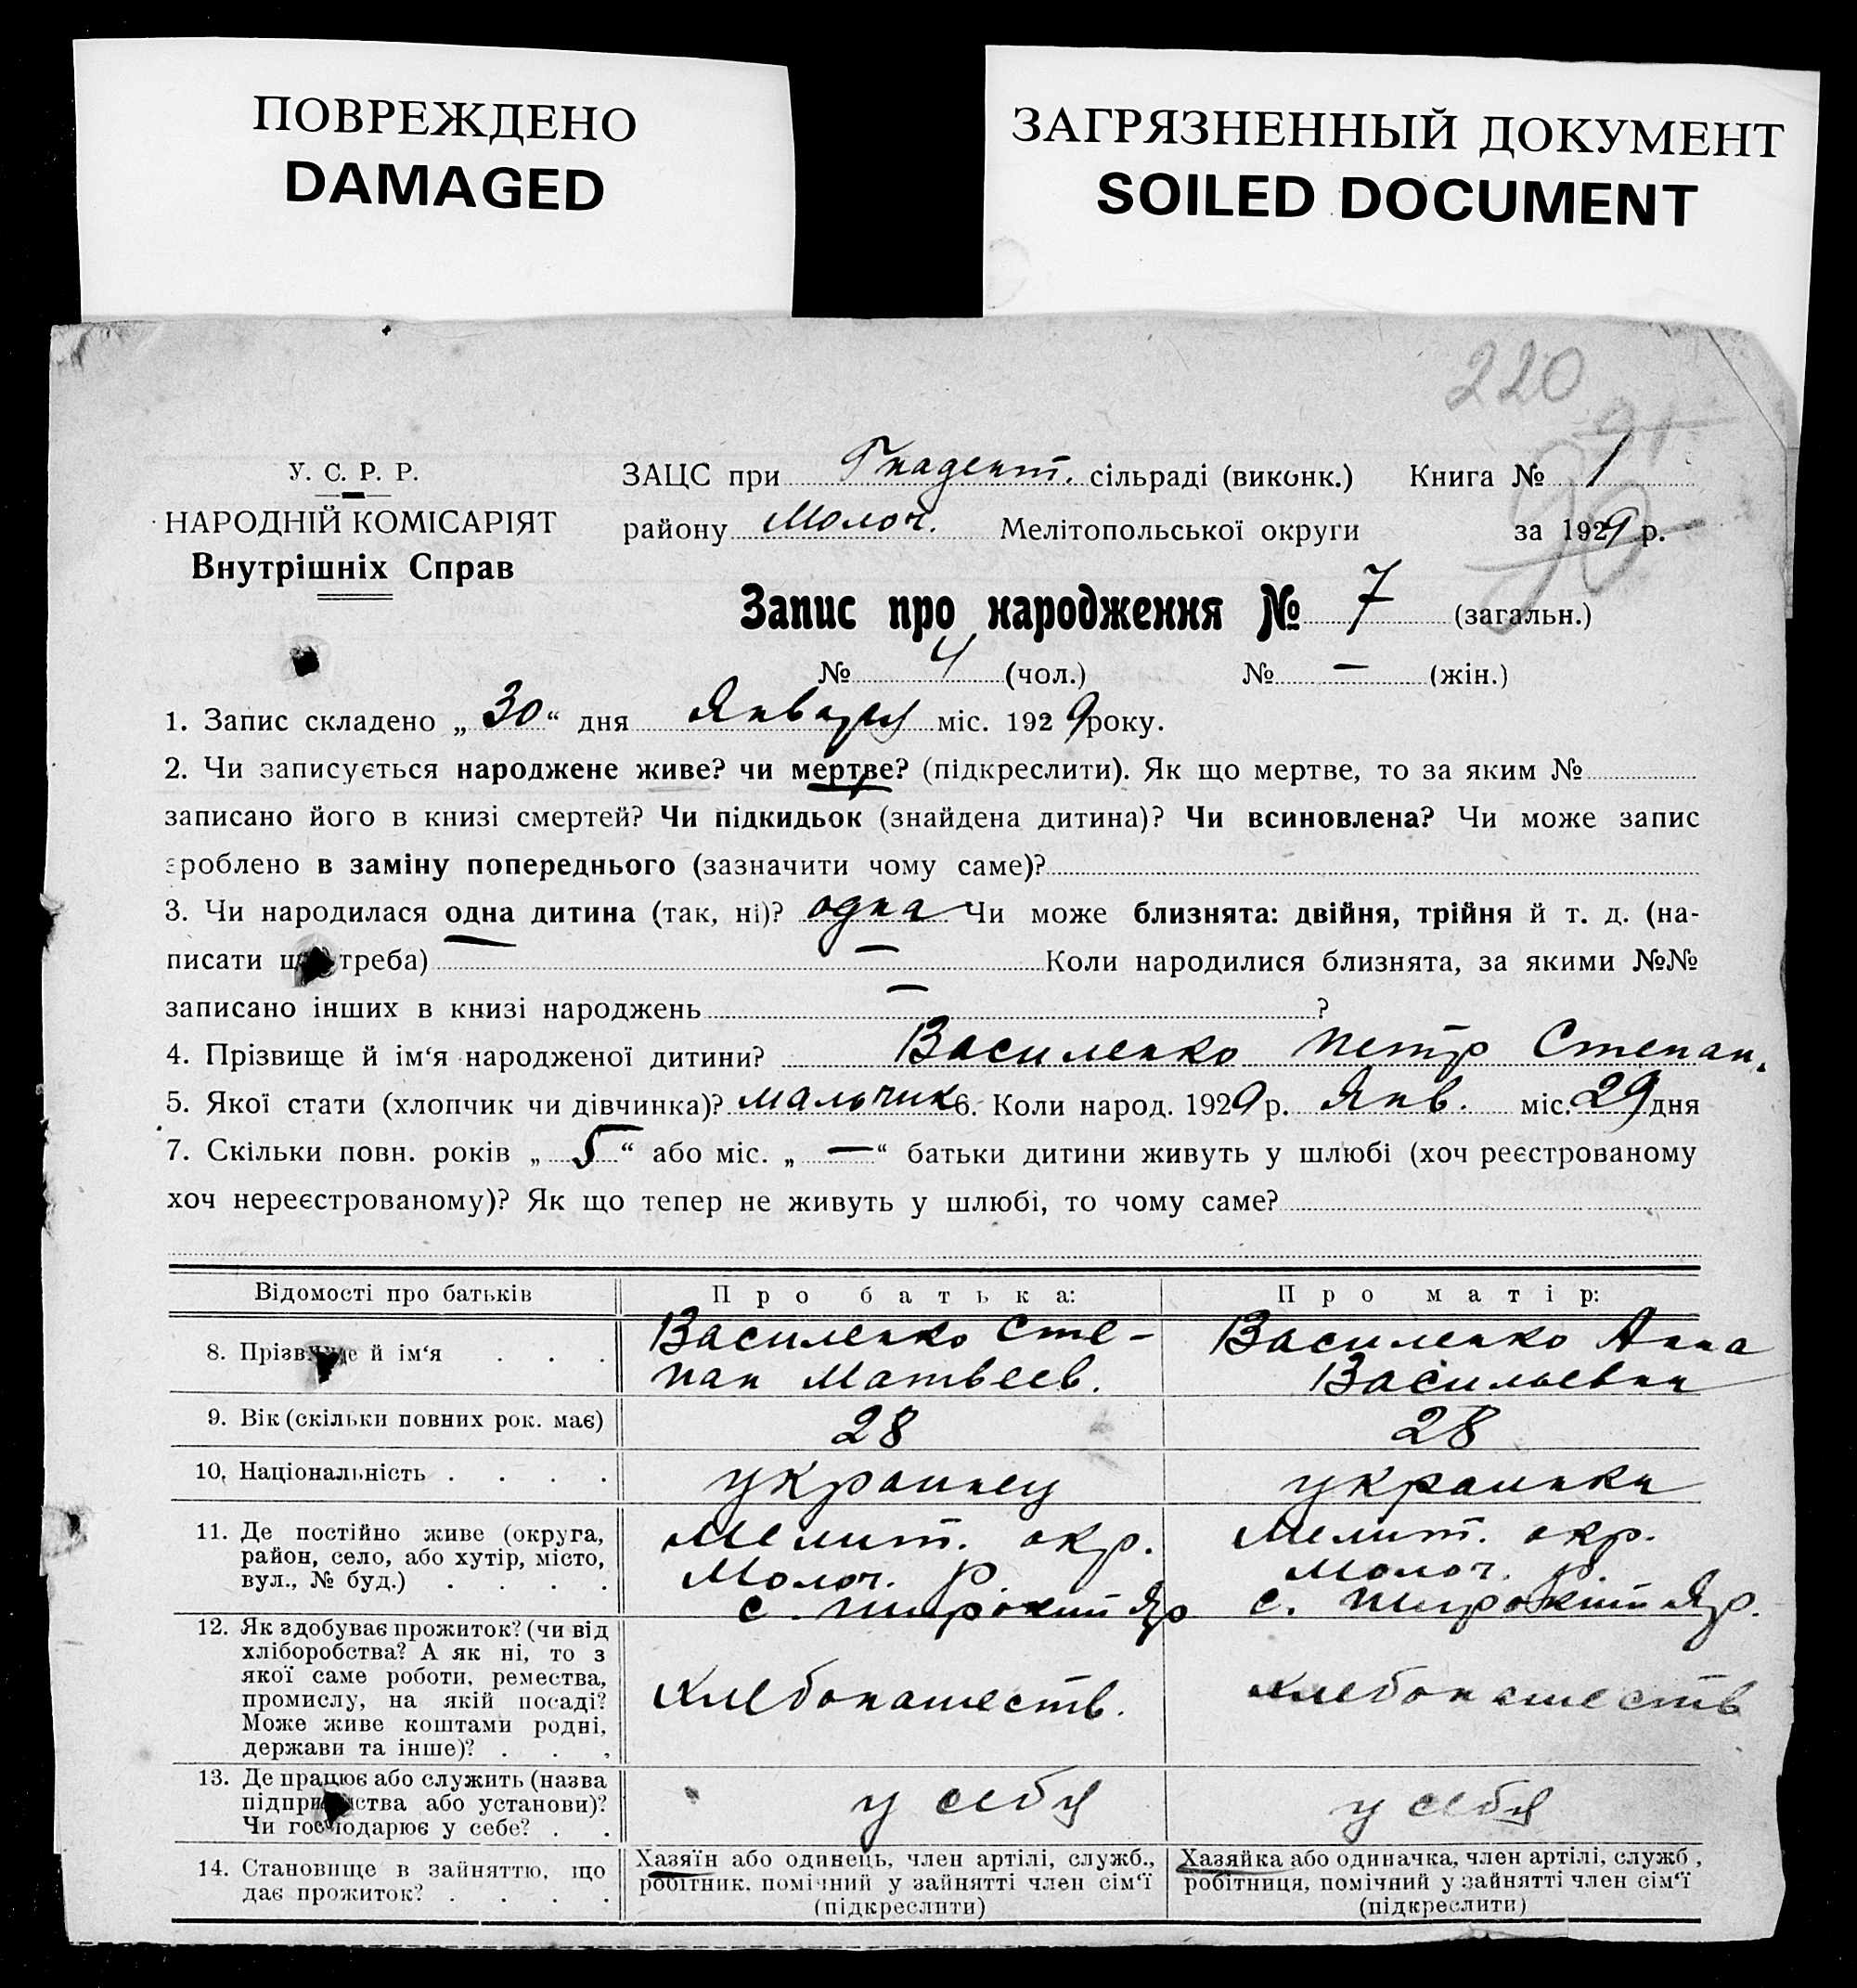 ПОВРЕЖДЕНО
DAMAGED
ЗАГРЯЗНЕННЫЙ ДОКУМЕНТ
SOILED DOCUMENT
220
91
90
У. С. Р. Р.
НАРОДНІЙ КОМІСАРІЯТ
Внутрішніх Справ
ЗАЦС при Гнадент. сільраді (виконк.) Книга № 1
району Молоч. Мелітопольської округи за 1929 р.
Запис про народження № 7 (загальн.)
№ 4 (чол.) № — (жін.)
1. Запис складено „ 30 “ дня Января міс. 1929 року.
2. Чи записується народжене живе? чи мертве? (підкреслити). Як що мертве, то за яким №
записано його в книзі смертей? Чи підкидьок (знайдена дитина)? Чи всиновлена? Чи може запис
зроблено в заміну попереднього (зазначити чому саме)?
3. Чи народилася одна дитина (так, ні)? одна Чи може близнята: двійня, трійня й т. д. (на-
писати що треба) — Коли народилися близнята, за якими №№
записано інших в книзі народжень — ?
4. Прізвище й ім‘я народженої дитини? Василенко Петр Степан.
5. Якої стати (хлопчик чи дівчинка)? мальчик 6. Коли народ. 1929 р. Янв. міс. 29 дня
7. Скільки повн. років „ 5 “ або міс. „ — “ батьки дитини живуть у шлюбі (хоч реєстрованому
хоч нереєстрованому)? Як що тепер не живуть у шлюбі, то чому саме?
Відомості про батьків Про батька: Про матір:
8. Прізвище й ім‘я . . . Василенко Сте- Василенко Анна
пан Матвеев. Васильевна
9. Вік (скільки повних рок. має) 28 28
10. Національність . . . . украинец украинка
11. Де постійно живе (округа, Мелит. окр. Мелит. окр.
район, село, або хутір, місто, Молоч. р. Молоч. р.
вул., № буд.) . . . . с. Широкий Яр с. Широкий Яр.
12. Як здобуває прожиток? (чи від
хліборобства? А як ні, то з
якої саме роботи, ремества,
промислу, на якій посаді? хлебопашеств. хлебопашеств
Може живе коштами родні,
держави та інше)? . . .
13. Де працює або служить (назва
підприємства або установи)? у себя у себя
Чи господарює у себе? . .
14. Становище в зайняттю, що Хазяїн або одинець, член артілі, служб., Хазяйка або одиначка, член артілі, служб.,
дає прожиток? . . . . робітник, помічний у зайнятті член сім‘ї робітниця, помічний у зайнятті член сім‘ї
(підкреслити) (підкреслити)